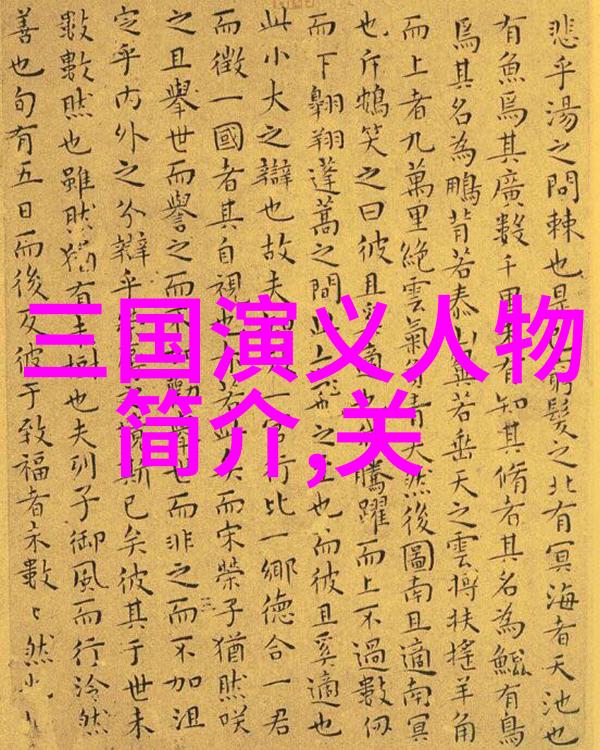 三国演义人物
简介,关
悲乎湯之問棘也是髮之北有冥海者天池也
有魚焉其廣數千里未有知其脩者其名為鯤有鳥
焉其名為鵬背若泰山翼若垂天之雲摶扶搖羊角
而上者九萬里絕雲氣負青天然後圖南且適南冥
也斥鴳笑之曰彼且奚適也騰躍而上不過數仞
而下翱翔蓬蒿之間此之至也而彼且奚適也
此小大之辯也故夫一官行比一鄉德合一君
而徵一國者其自視也矣而宋榮子猶然咲
之且舉世而譽之而不勸舉而非之而不加沮
定乎內外之分辯乎斯已矣彼其于世未
數數然也雖然猶有未樹也夫列子御風而行泠然
善也旬有五日而後反彼于致福者未數〻然